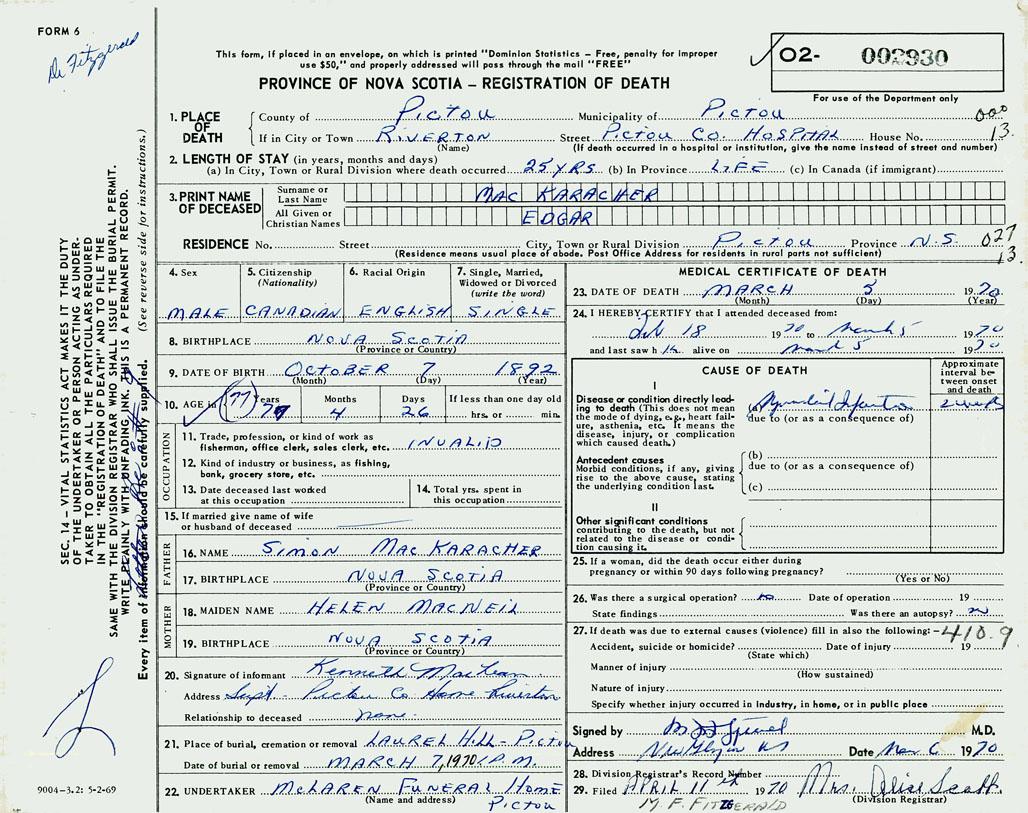 FORM 6
Dr Fitzgerald
This form, if placed in an envelope, on which is printed "Dominion Statistics – Free, penalty for improper
use $50," and properly addressed will pass through the mail "FREE"
PROVINCE OF NOVA SCOTIA – REGISTRATION OF DEATH
02- 002930
For use of the Department only
1. PLACE OF DEATH
County of PICTOU Municipality of PICTOU 000
If in City or Town RIVERTON Street PICTOU CO. HOSPITAL House No. 13.
(Name) (If death occurred in a hospital or institution, give the name instead of street and number)
2. LENGTH OF STAY (in years, months and days)
(a) In City, Town or Rural Division where death occurred 25 YRS (b) In Province LIFE (c) In Canada (if immigrant)
3. PRINT NAME OF DECEASED
Surname or Last Name MAC KARACHER
All Given or Christian Names EDGAR
RESIDENCE No. Street City, Town or Rural Division PICTOU Province N.S. 027
(Residence means usual place of abode. Post Office Address for residents in rural parts not sufficient) 13.
4. Sex MALE
5. Citizenship (Nationality) CANADIAN
6. Racial Origin ENGLISH
7. Single, Married, Widowed or Divorced (write the word) SINGLE
8. BIRTHPLACE NOVA SCOTIA
(Province or Country)
9. DATE OF BIRTH OCTOBER 7 1892
(Month) (Day) (Year)
10. AGE in Years 77 Months 4 Days 26 If less than one day old hrs. or min.
OCCUPATION
11. Trade, profession, or kind of work as fisherman, office clerk, sales clerk, etc. INVALID
12. Kind of industry or business, as fishing, bank, grocery store, etc.
13. Date deceased last worked at this occupation
14. Total yrs. spent in this occupation
15. If married give name of wife or husband of deceased
FATHER
16. NAME SIMON MAC KARACHER
17. BIRTHPLACE NOVA SCOTIA
(Province or Country)
MOTHER
18. MAIDEN NAME HELEN MACNEIL
19. BIRTHPLACE NOVA SCOTIA
(Province or Country)
20. Signature of informant Kenneth MacLean
Address Supt - Pictou Co Home Riverton
Relationship to deceased none.
21. Place of burial, cremation or removal LAUREL HILL - PICTOU
Date of burial or removal MARCH 7, 1970 P.M.
22. UNDERTAKER McLAREN FUNERAL HOME
(Name and address) PICTOU
MEDICAL CERTIFICATE OF DEATH
23. DATE OF DEATH MARCH 5 1970
(Month) (Day) (Year)
24. I HEREBY CERTIFY that I attended deceased from:
Feb 18 1970 to March 5 1970
and last saw him alive on March 5 1970
CAUSE OF DEATH
Approximate interval between onset and death
I
Disease or condition directly leading to death (This does not mean the mode of dying, e.g., heart failure, asthenia, etc. It means the disease, injury, or complication which caused death.)
(a) Myocardial Infarction 2 weeks
due to (or as a consequence of)
Antecedent causes
Morbid conditions, if any, giving rise to the above cause, stating the underlying condition last.
(b)
due to (or as a consequence of)
(c)
II
Other significant conditions
contributing to the death, but not related to the disease or condition causing it.
25. If a woman, did the death occur either during pregnancy or within 90 days following pregnancy?
(Yes or No)
26. Was there a surgical operation? no Date of operation 19
State findings Was there an autopsy? no
27. If death was due to external causes (violence) fill in also the following: - 410.9
Accident, suicide or homicide? Date of injury 19
(State which)
Manner of injury
(How sustained)
Nature of injury
Specify whether injury occurred in industry, in home, or in public place
Signed by M.D.
Address New Glasgow NS Date Mar 6 1970
28. Division Registrar's Record Number
29. Filed APRIL 11th 1970 Mrs. Alice Scott
M. F. FITZGERALD (Division Registrar)
SEC. 14 – VITAL STATISTICS ACT MAKES IT THE DUTY
OF THE UNDERTAKER OR PERSON ACTING AS UNDER-
TAKER TO OBTAIN ALL THE PARTICULARS REQUIRED
IN THE "REGISTRATION OF DEATH" AND TO FILE THE
SAME WITH THE DIVISION REGISTRAR WHO SHALL ISSUE THE BURIAL PERMIT.
WRITE PLAINLY WITH UNFADING INK. THIS IS A PERMANENT RECORD.
Every item of information should be carefully supplied. (See reverse side for instructions.)
9004-3.2: 5-2-69